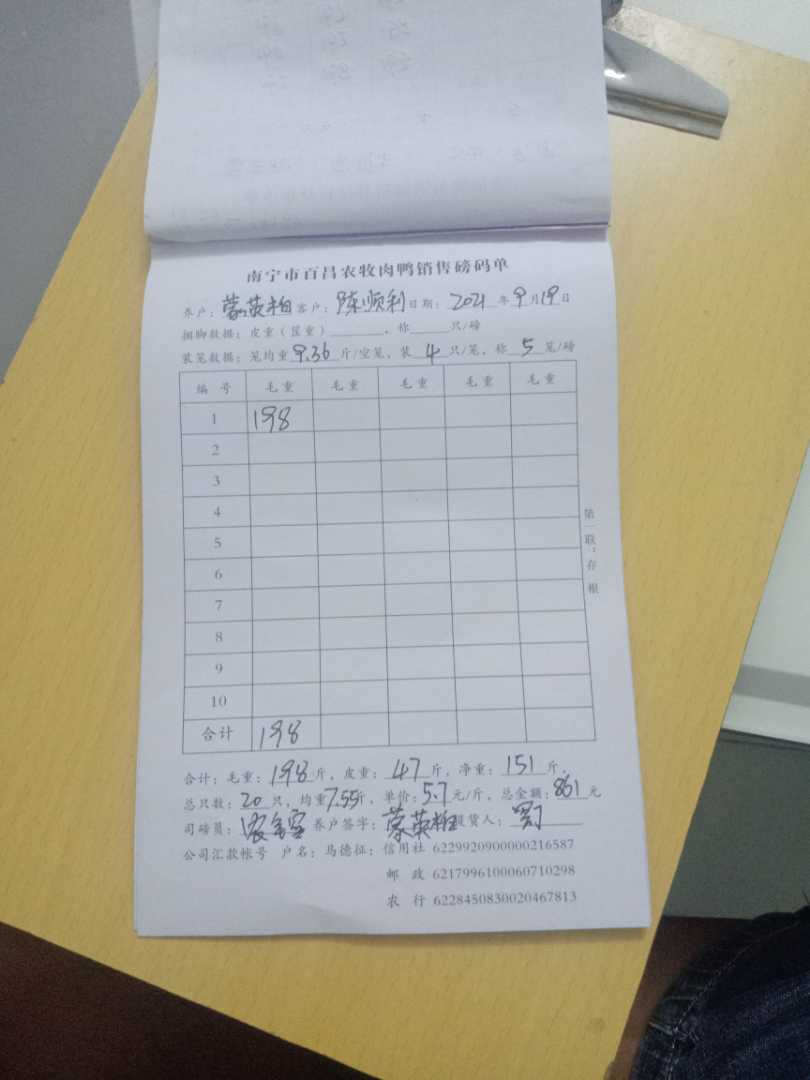 南宁市百昌农牧肉鸭销售磅码单
养户：蒙英柏 客户：陈顺利 日期：2021年9月19日
捆脚数据：皮重（筐重）______，称____只/磅
装笼数据：笼均重9.36斤/空笼，装4只/笼，称5笼/磅
编号 毛重 毛重 毛重 毛重 毛重
1 198
2
3
4
5
6
7
8
9
10
合计 198
第一联：存根
合计：毛重：198斤，皮重：47斤，净重：151斤，
总只数：20只，均重7.55斤，单价：5.7元/斤，总金额：861元
司磅员： 养户签字：蒙英柏 提货人：
公司汇款帐号 户名：马德征：信用社 6229920900000216587
邮政 6217996100060710298
农行 6228450830020467813